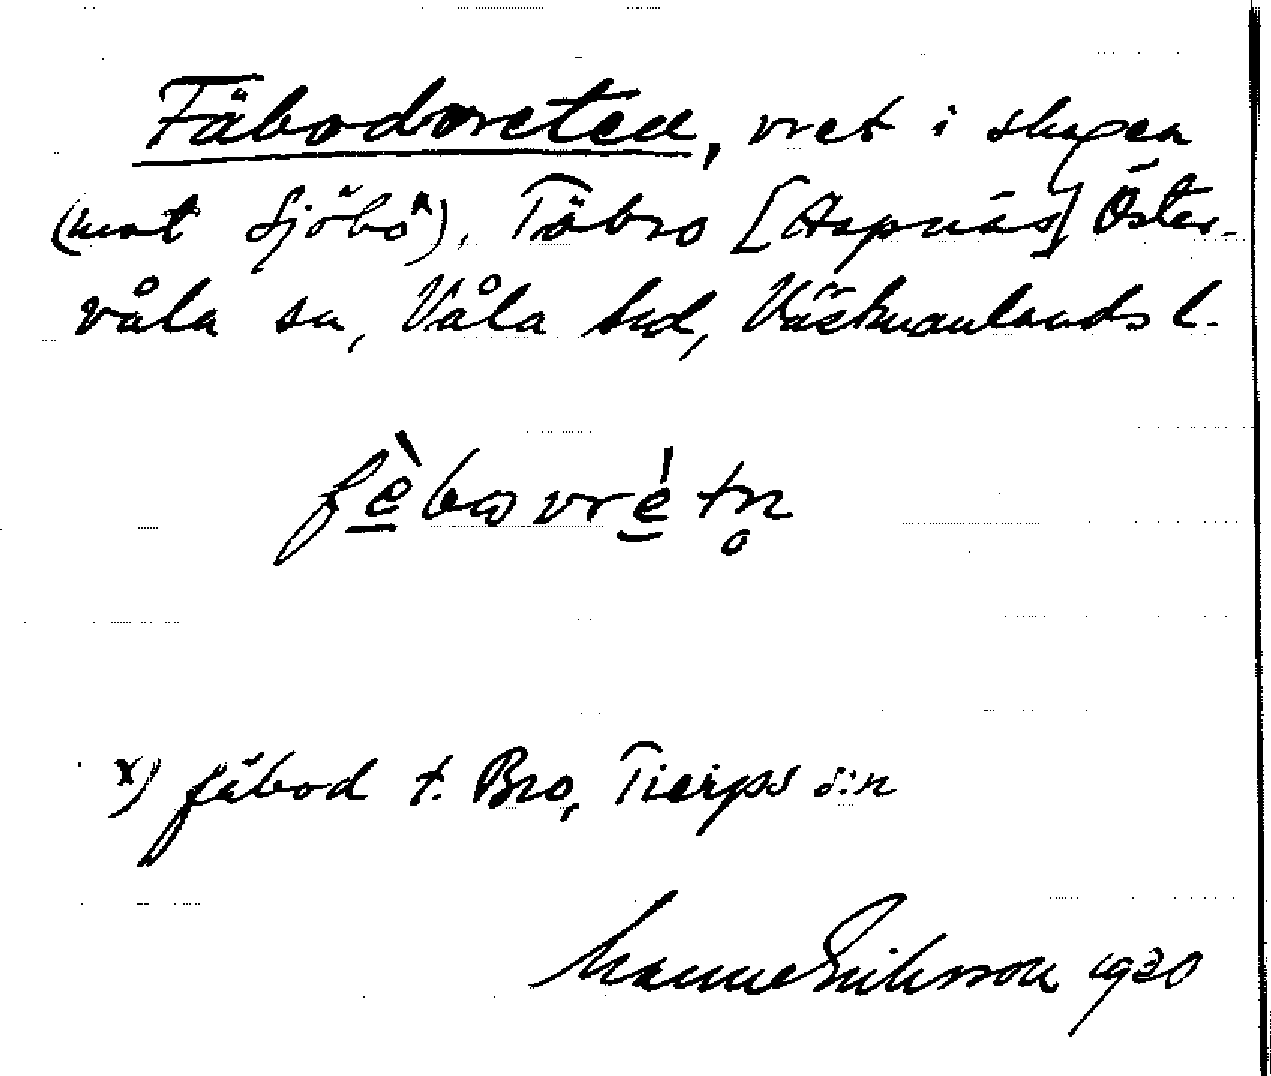 Fäbodvreten, vret i skogen
(mot Sjöbo x), Täbro [Aspnäs] Öster-
våla sn, Våla hd, Västmanlands l.
fèbωvrétn̥
x) fäbod t. Bro, Tierps s:n
Manne Eriksson 1930